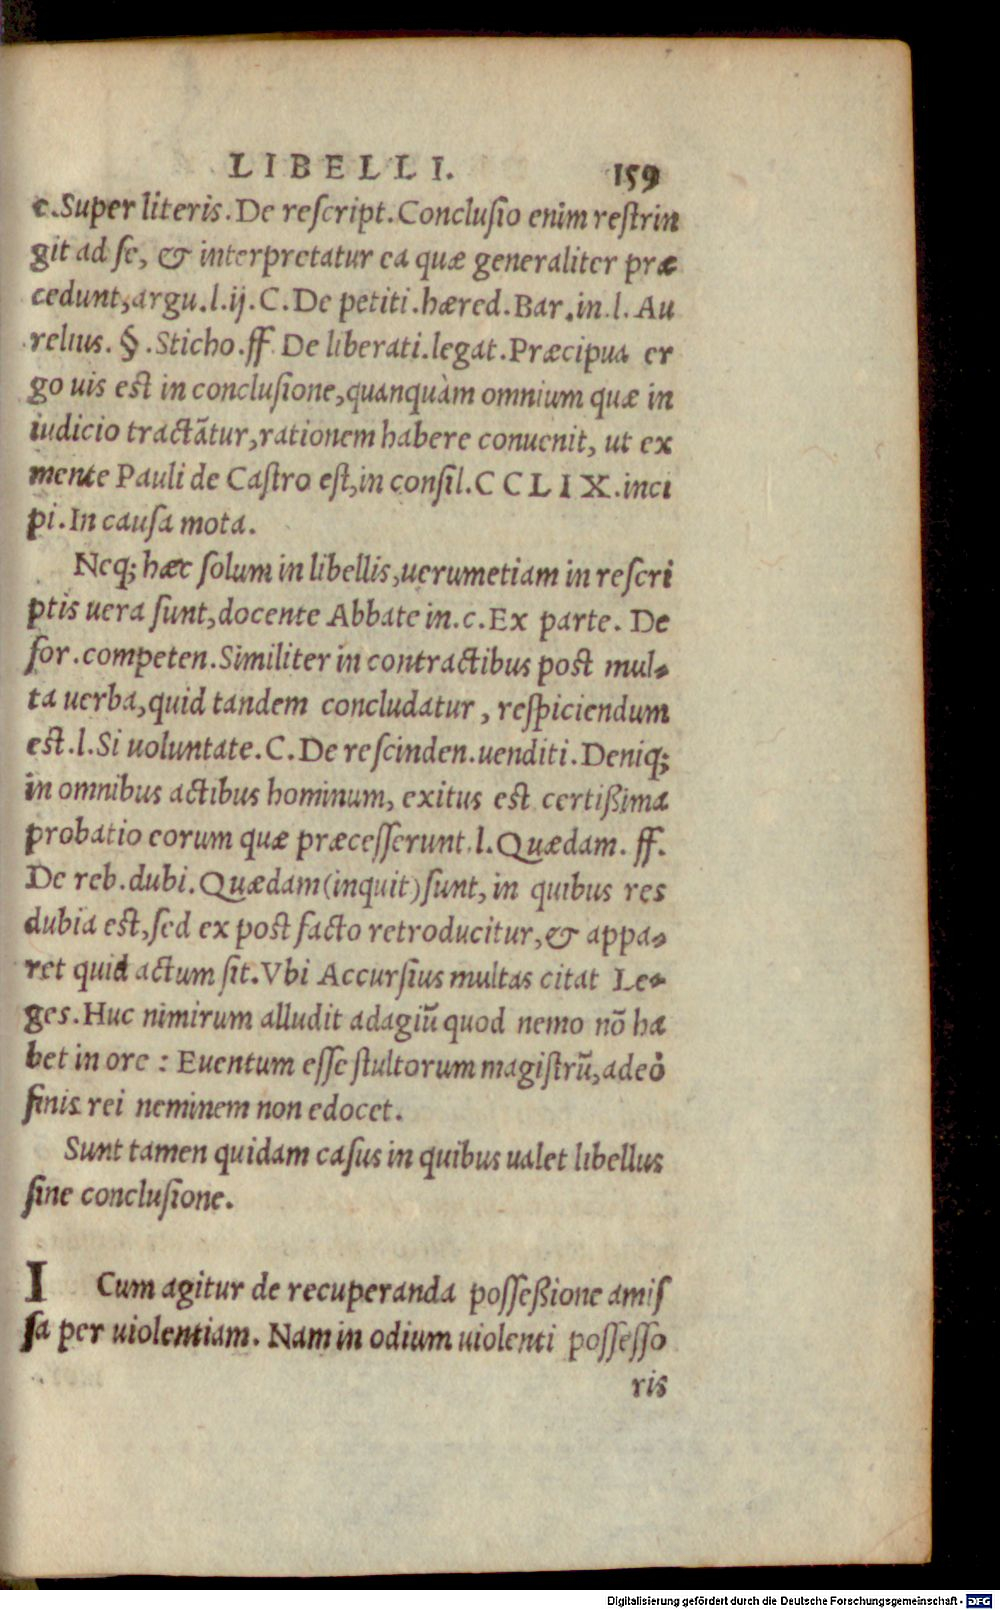 LIBELLI. 159
c. Super literis. De reſcript. Concluſio enim reſtrin
git ad ſe, & interpretatur ea quæ generaliter præ
cedunt, argu. l. ij. C. De petiti. hæred. Bar. in l. Au
relius. §. Sticho. ff. De liberati. legat. Præcipua er
go uis est in concluſione, quanquàm omnium quæ in
iudicio tractãtur, rationem habere conuenit, ut ex
mente Pauli de Caſtro eſt, in conſil. CCLIX. inci
pi. In cauſa mota.
Neq; hæc ſolum in libellis, uerumetiam in reſcri
ptis uera ſunt, docente Abbate in. c. Ex parte. De
for. competen. Similiter in contractibus poſt mul-
ta uerba, quid tandem concludatur, reſpiciendum
eſt. l. Si uoluntate. C. De reſcinden. uenditi. Deniq;
in omnibus actibus hominum, exitus eſt certißima
probatio eorum quæ præceſſerunt. l. Quædam. ff.
De reb. dubi. Quædam (inquit) ſunt, in quibus res
dubia eſt, ſed ex poſt facto retroducitur, & appa-
ret quid actum ſit. Vbi Accurſius multas citat Le-
ges. Huc nimirum alludit adagiũ quod nemo nõ ha
bet in ore: Euentum eſſe ſtultorum magiſtrũ, adeò
finis rei neminem non edocet.
Sunt tamen quidam caſus in quibus ualet libellus
ſine concluſione.
I Cum agitur de recuperanda poſſeßione amiſ
ſa per uiolentiam. Nam in odium uiolenti poſſeſſo
ris
Digitalisierung gefördert durch die Deutsche Forschungsgemeinschaft - DFG